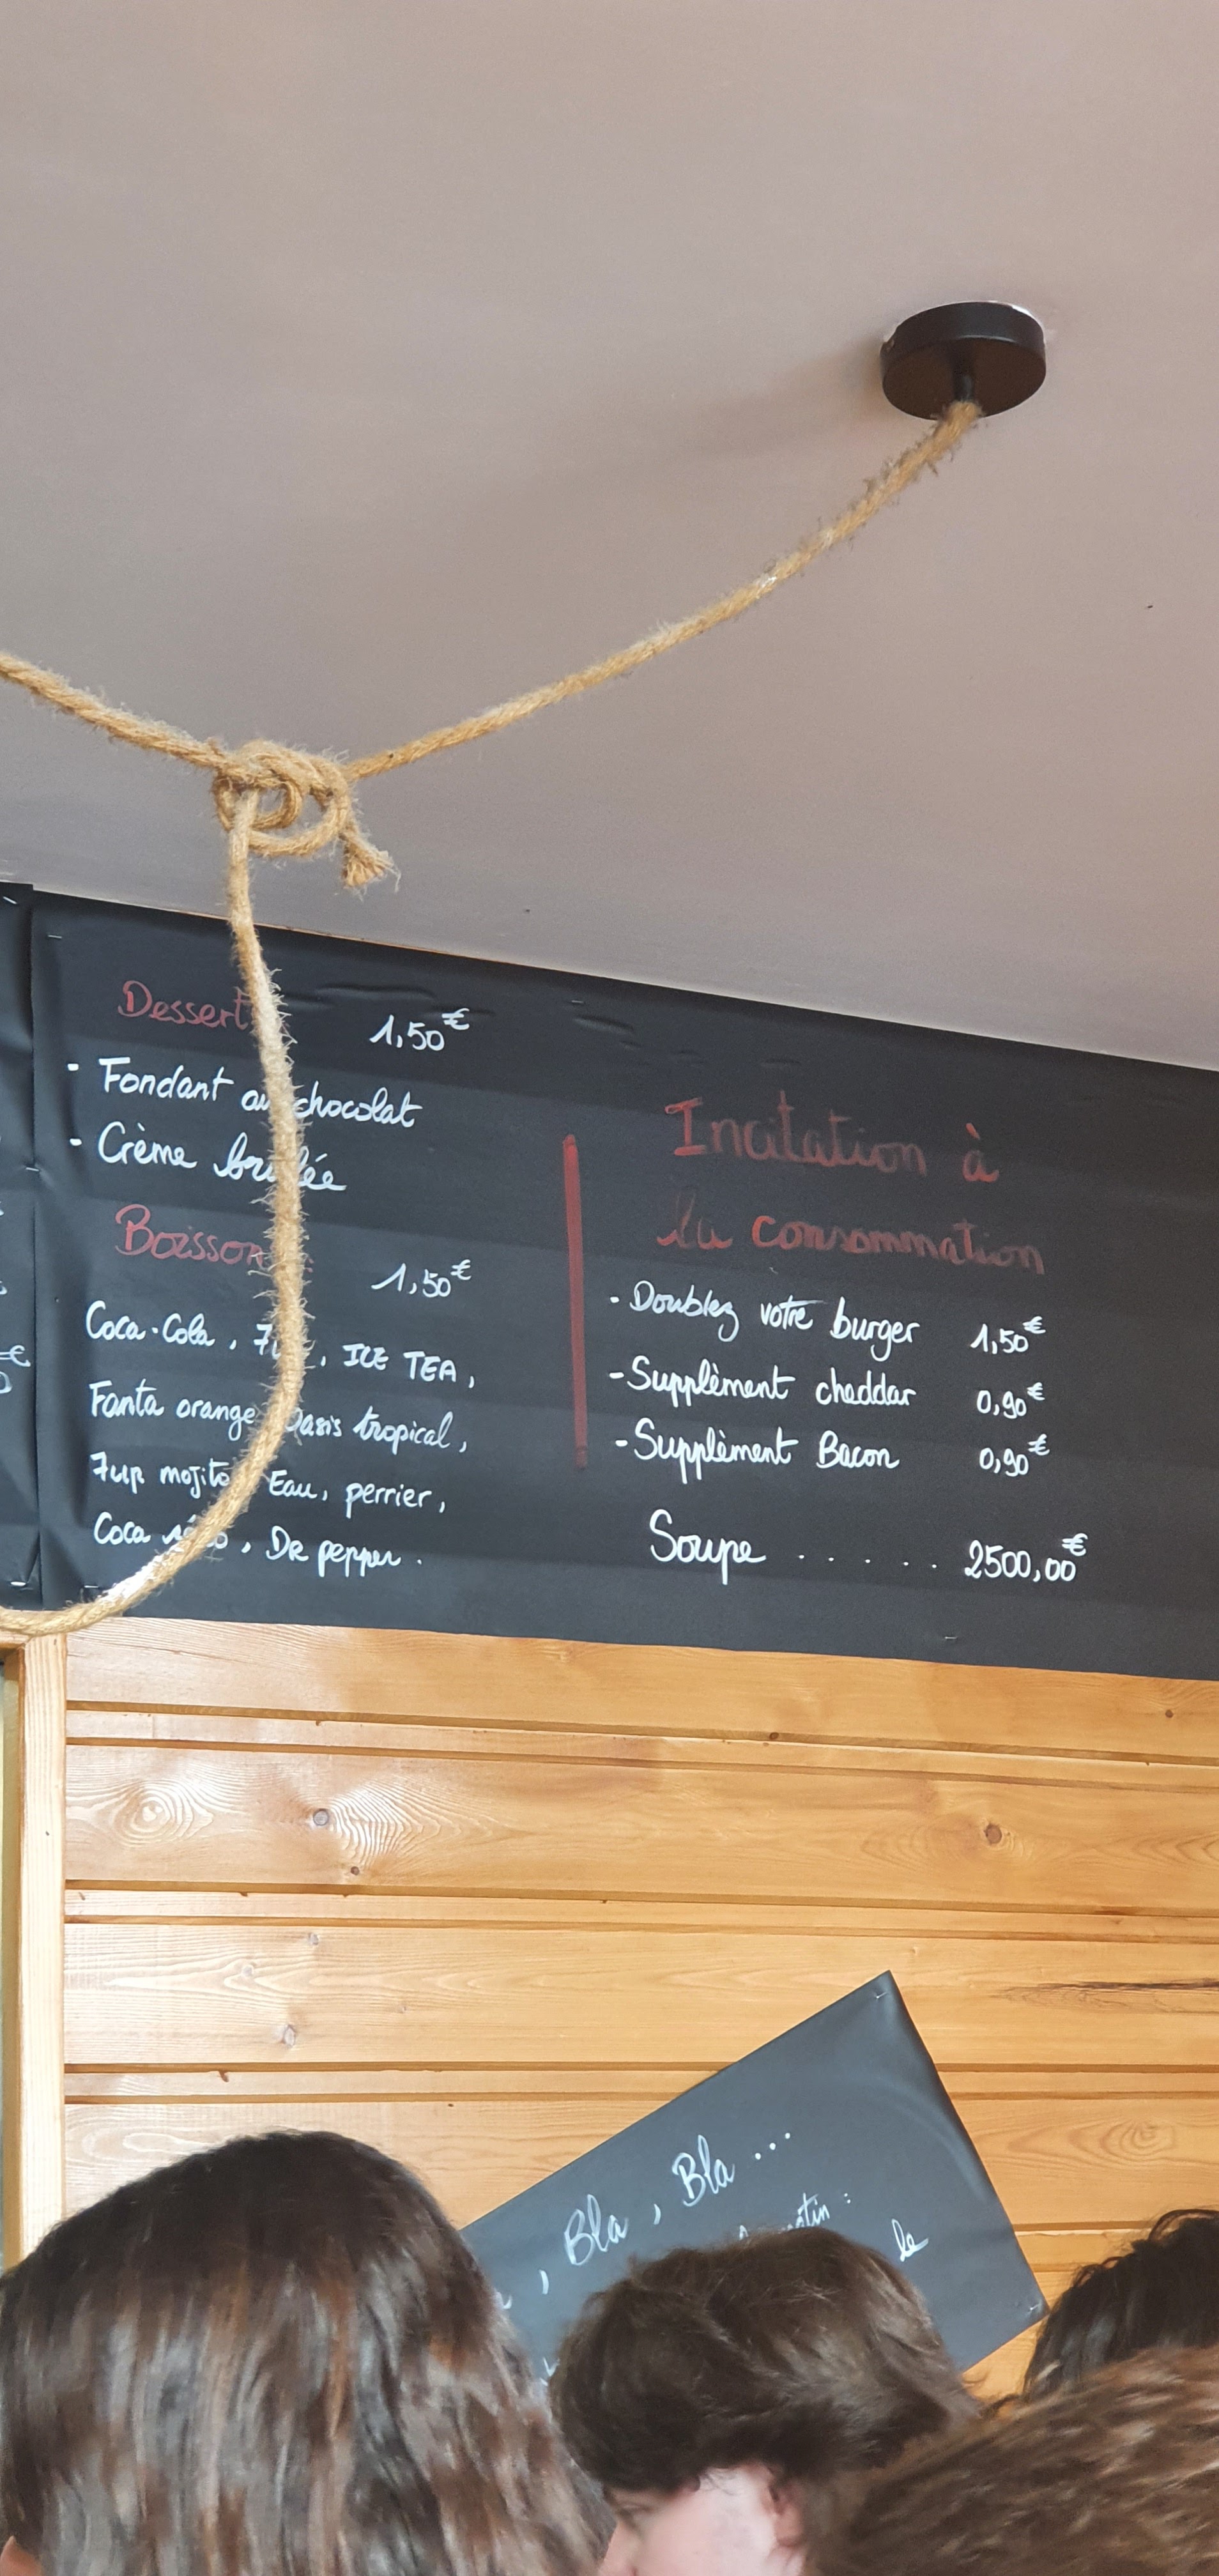 Dessert
1,50€
- Fondant au chocolat
- Crème brulée
Boisson
1,50€
Coca-Cola, 7up, ICE TEA,
Fanta orange, Oasis tropical,
7up mojito, Eau, perrier,
Coca zéro, DR pepper.
Incitation à
la consommation
- Doublez votre burger 1,50€
- Supplèment cheddar 0,90€
- Supplèment Bacon 0,90€
Soupe ...... 2500,00€
, Bla, Bla ...
matin :
le